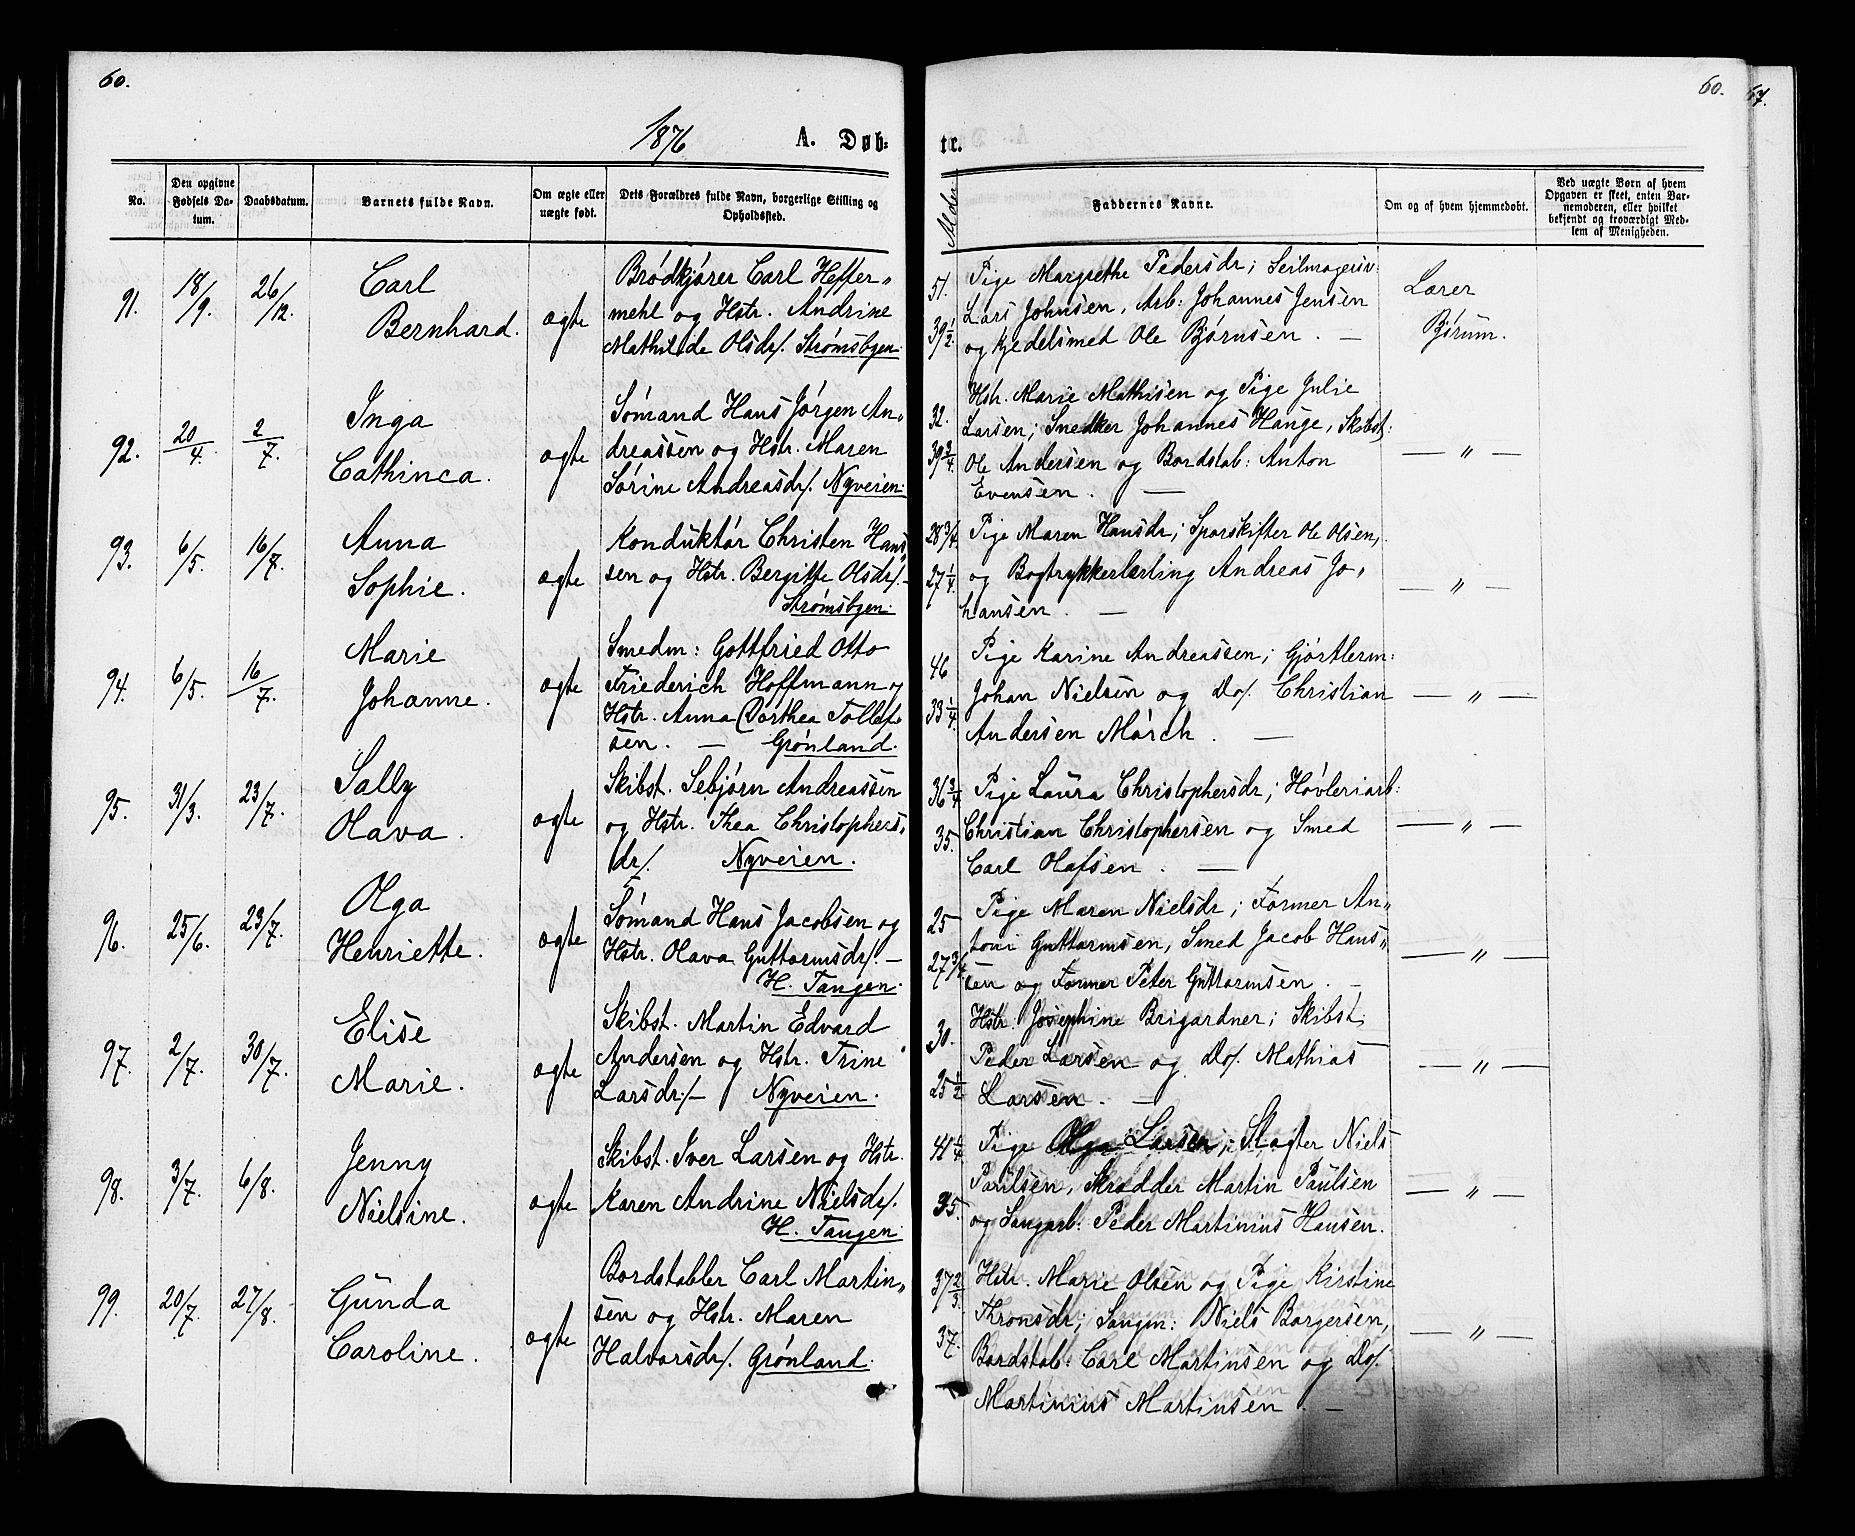 60.
60.
67.
1876
A. Døb-
te.
No.
Den opgivne Fødsels Da-tum.
Daabsdatum.
Barnets fulde Navn.
Om ægte eller uægte født.
Dets Forældres fulde Navn, borgerlige Stilling og Opholdssted.
Alder
Faddernes Navne.
Om og af hvem hjemmedøbt.
Ved uægte Børn af hvem Opgaven er skeet, enten Bar-nemoderen, eller hvilket bekjendt og troværdigt Med-lem af Menigheden.
91.
18/9.
26/12.
Carl
Bernhard.
ægte
Brødkjører Carl Heffer„
mehl og Hstr. Andrine
Mathilde Olsdr/. Strømsbgen.
51.
39 1/2.
Pige Margrethe Pedersdr; Seilmagersv:
Lars Johnsen, Arb: Johannes Jensen
og Kjedelsmed Ole Bjørnsen. —
Lærer
Bjørum.
92.
20/4.
2/7.
Inga
Cathinca.
ægte
Sømand Hans Jørgen An„
dreassen og Hstr. Maren
Sørine Andreasdr/. Nyveien.
32.
39 3/4.
Hstr. Marie Mathisen og Pige Julie
Larsen; Snedker Johannes Hauge, Skibst:
Ole Andersen og Bordstab: Anton
Evensen. —
— „ —
93.
6/5.
16/7.
Anna
Sophie.
ægte
Konduktør Christen Han„
sen og Hstr. Bergitte Olsdr/. —
Strømsbgen.
28 3/4.
27 1/4.
Pige Maren Hansdr; Sporskifter Ole Olsen,
og Bogtrykkerlærling Andreas Jo„
hansen. —
— „ —
94.
6/5.
16/7.
Marie
Johanne.
ægte
Smedm: Gottfried Otto
Friederich Hoffmann og
Hstr. Anna Dorthea Tollef„
sen. — Grønland.
46
33 1/4.
Pige Karine Andreassen; Gjørtlerm:
Johan Nielsen og Do/. Christian
Andersen Mørch. —
— „ —
95.
31/3.
23/7.
Sally
Olava.
ægte
Skibst. Sebjørn Andreassen
og Hstr. Thea Christophers„
dr/. Nyveien.
36 3/4
35.
Pige Laura Christophersdr; Høvleriarb:
Christian Christophersen og Smed
Carl Olafsen. —
— „ —
96.
25/6.
23/7.
Olga
Henriette.
ægte
Sømand Hans Jacobsen og
Hstr. Olava Guttormsdr/. —
H. Tangen.
25
27 3/4.
Pige Maren Nielsdr; Former An„
toni Guttormsen, Smed Jacob Hans„
sen og Former Peter Guttormsen. —
— „ —
97.
2/7.
30/7.
Elise
Marie.
ægte
Skibst. Martin Edvard
Andersen og Hstr. Trine
Larsdr/. — Nyveien.
30.
25 1/2
Hstr. Josephine Brigardner; Skibst;
Peder Larsen og Do/. Mathias
Larssen. —
— „ —
98.
3/7.
6/8.
Jenny
Nielsine.
ægte
Skibst. Iver Larsen og Hstr.
Karen Andrine Nielsdr/.
H. Tangen.
41 1/4
35.
Pige Olga Larsen; Slagter Niels
Paulsen, Skrædder Martin Paulsen
og Saugarb: Peder Martinius Hansen.
— „ —
99.
20/7.
27/8.
Gunda
Caroline.
ægte
Bordstabler Carl Martin„
sen og Hstr. Maren
Halvorsdr/. Grønland.
37 2/3.
37.
Hstr. Marie Olsen og Pige Kirstine
Thronsdr; Saugm: Niels Borgersen,
Bordstab: Carl Martinsen og Do/.
Martinius Martinsen. —
— „ —